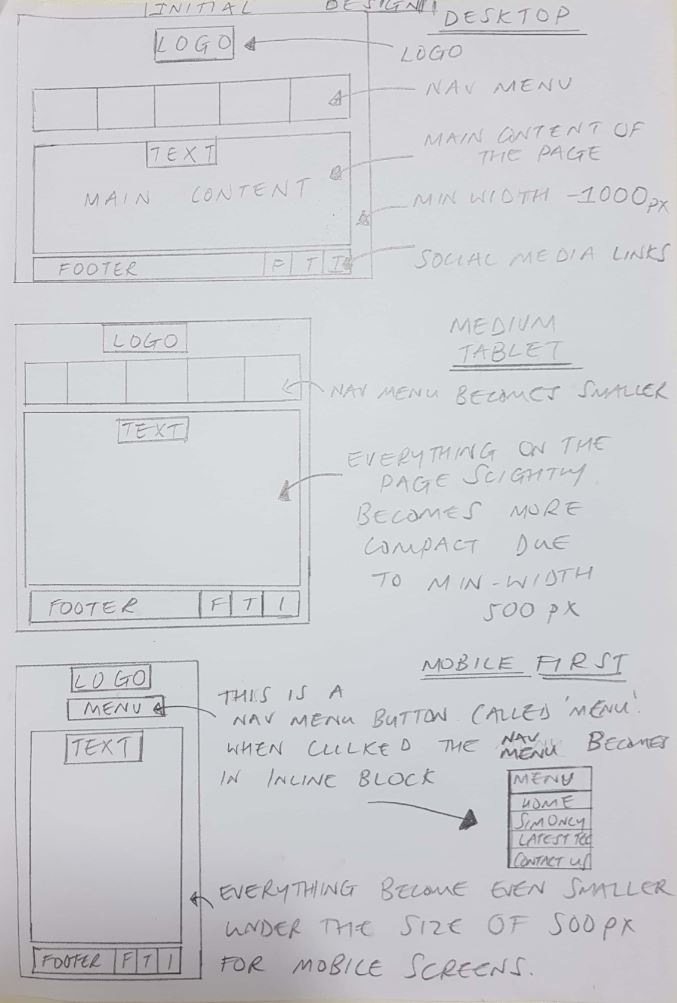 INITIAL DESIGN!!
DESKTOP
LOGO
LOGO
NAV MENU
TEXT
MAIN CONTENT
MAIN CONTENT OF
THE PAGE
MIN WIDTH -1000px
FOOTER F T I
SOCIAL MEDIA LINKS
MEDIUM
TABLET
LOGO
NAV MENU BECOMES SMALLER
TEXT
EVERYTHING ON THE
PAGE SLIGHTLY
BECOMES MORE
COMPACT DUE
TO MIN-WIDTH
500 px
FOOTER F T I
MOBILE FIRST
LOGO
MENU
TEXT
THIS IS A
NAV MENU BUTTON CALLED 'MENU'.
WHEN CLICKED THE NAV MENU BECOMES
IN INLINE BLOCK
MENU
HOME
SIM ONLY
LATEST TEC
CONTACT US
EVERYTHING BECOME EVEN SMALLER
UNDER THE SIZE OF 500px
FOR MOBILE SCREENS.
FOOTER F T I